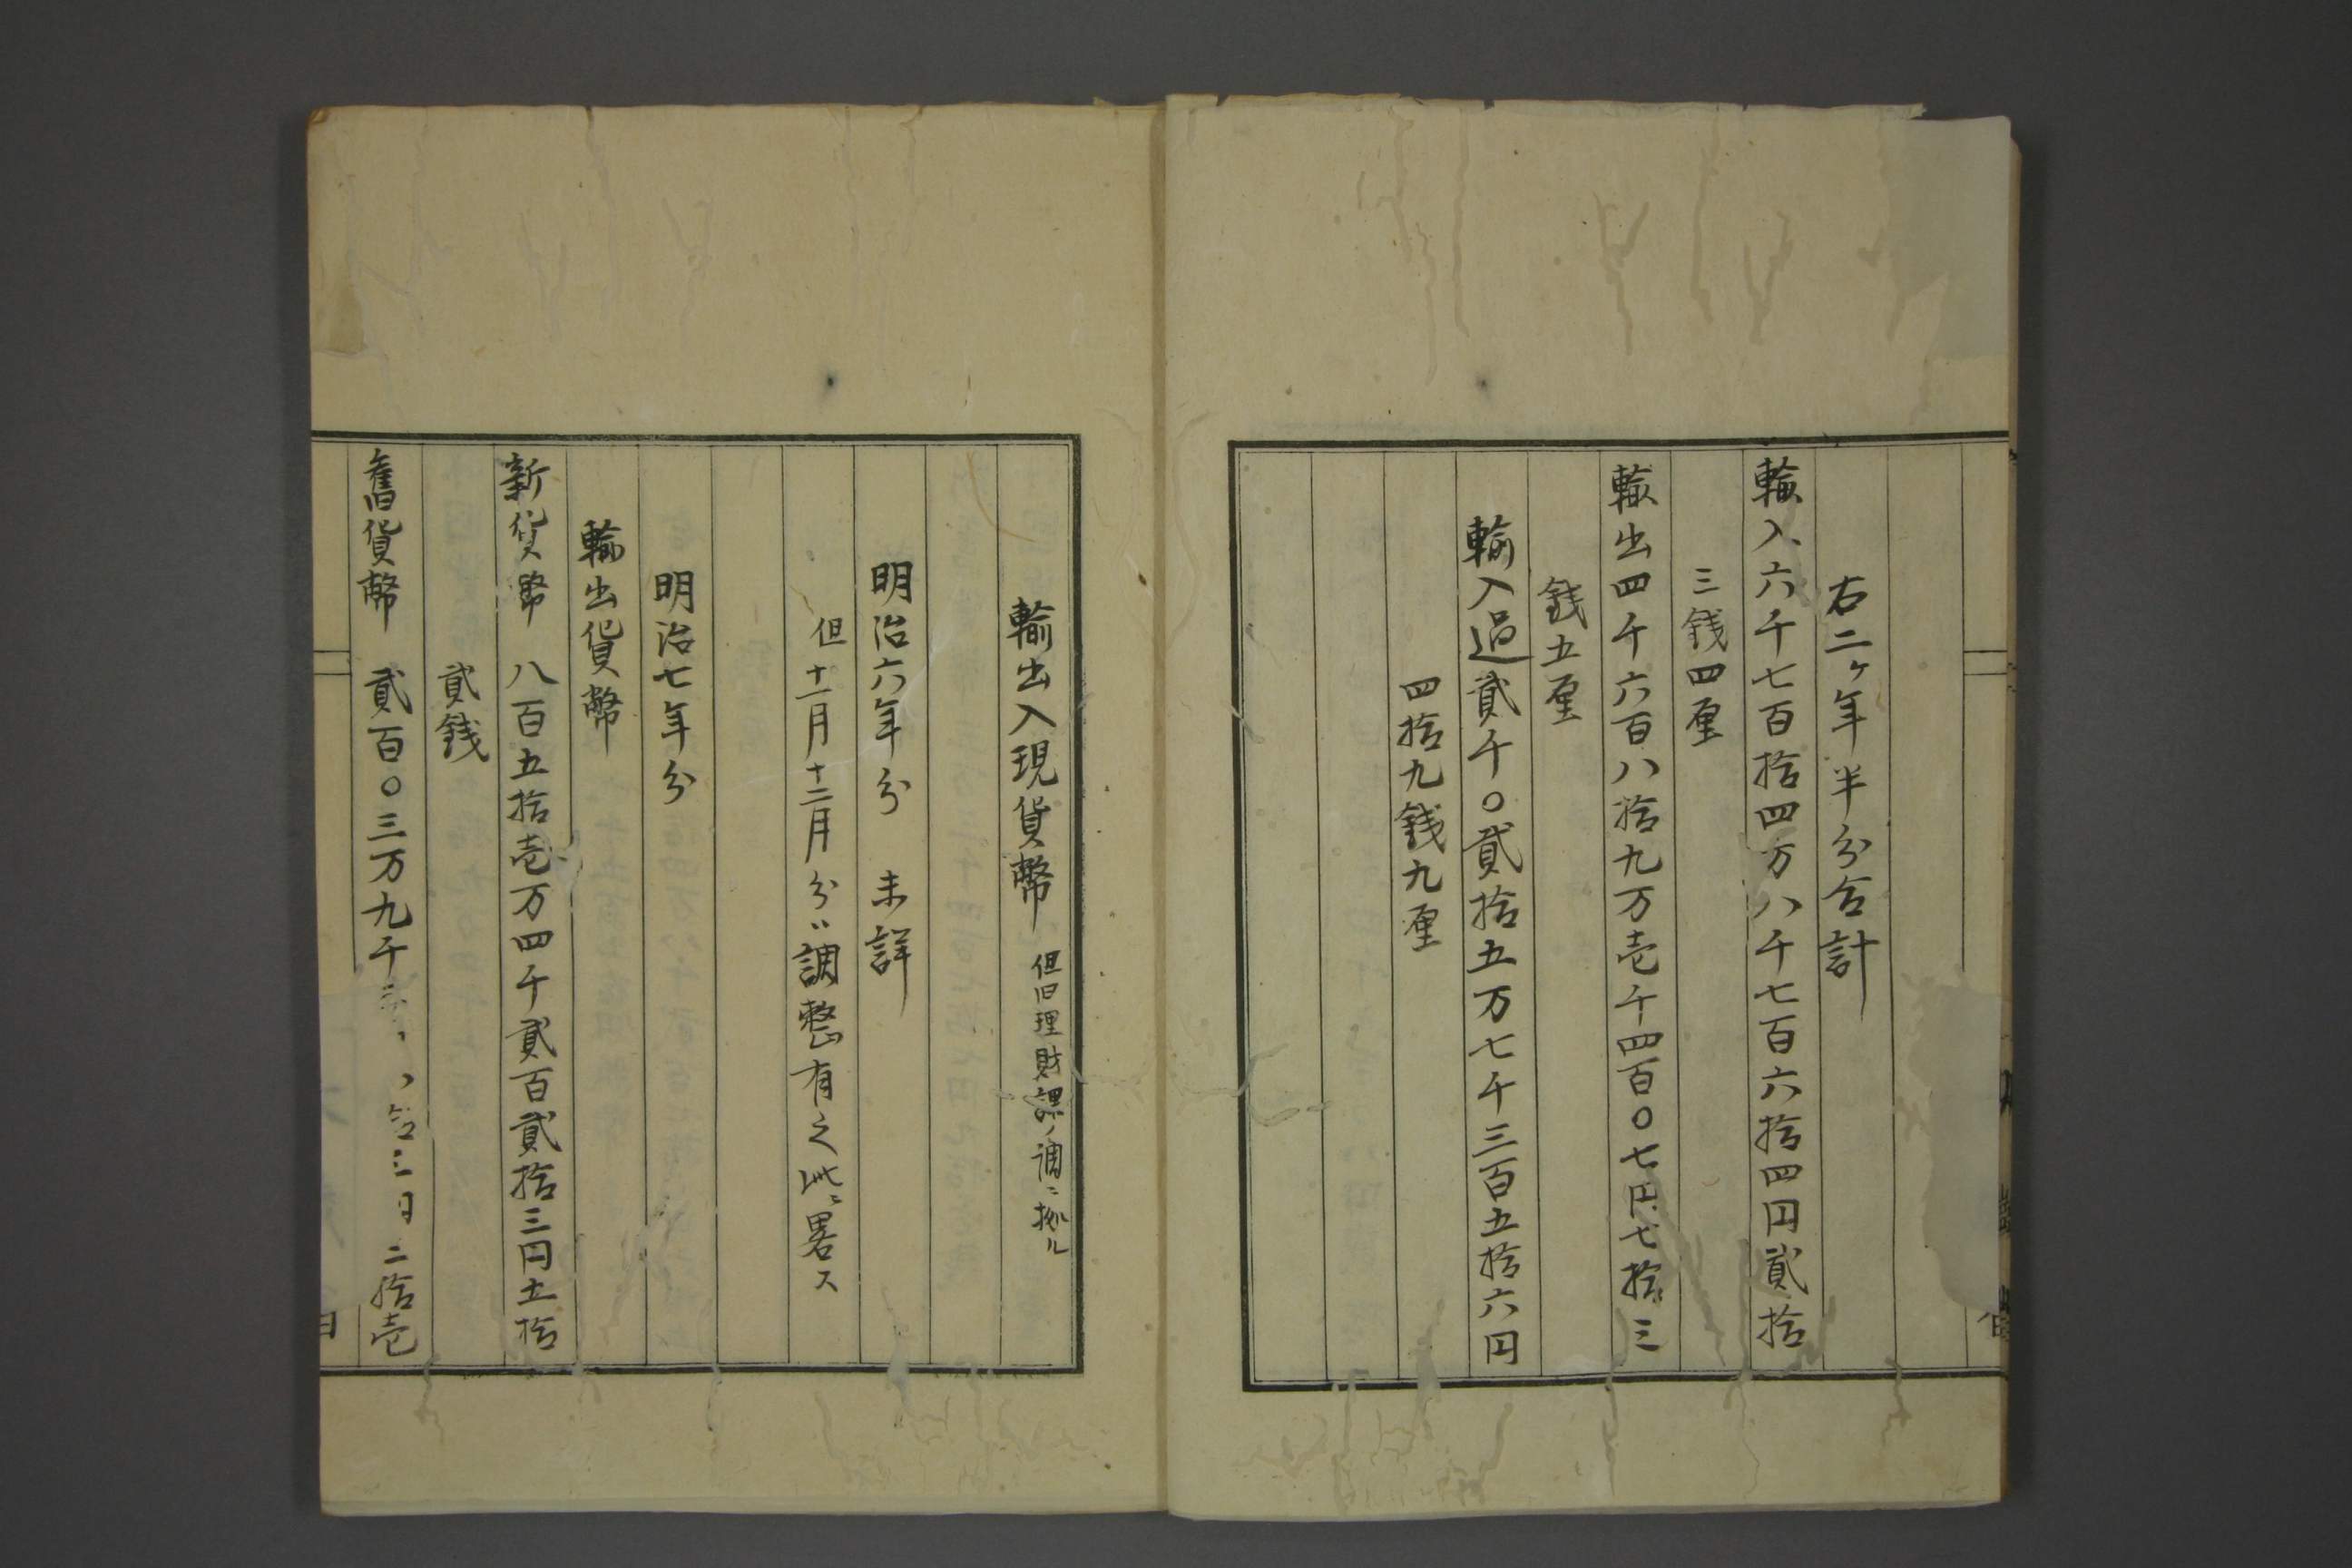 右二ヶ年半分合計
輸入六千七百拾四万八千七百六拾四円貳拾
三銭四厘
輸出四千六百八拾九万壱千四百〇七円七拾三
銭五厘
輸入過貳千〇貳拾五万七千三百五拾六円
四拾九銭九厘
輸出入現貨幣 但旧理財課ノ調ニ拠ル
明治六年分 未詳
但十一月十二月分ハ調整有之此ニ畧ス
明治七年分
輸出貨幣
新貨幣 八百五拾壱万四千貳百貳拾三円五拾
貳銭
舊貨幣 貳百〇三万九千 二拾壱